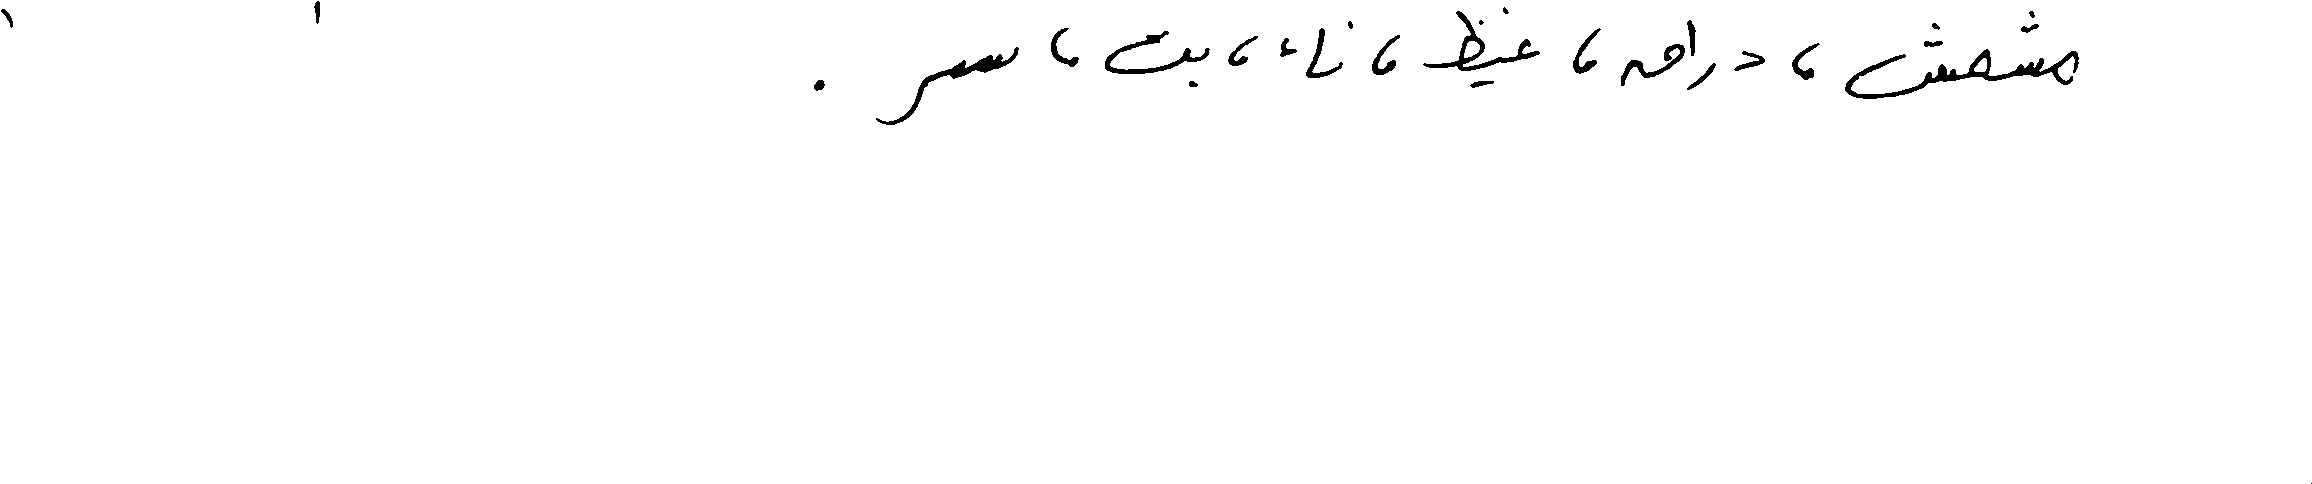 مشمش ، دراق ، غيظ ، ناء ، بت ، سر .